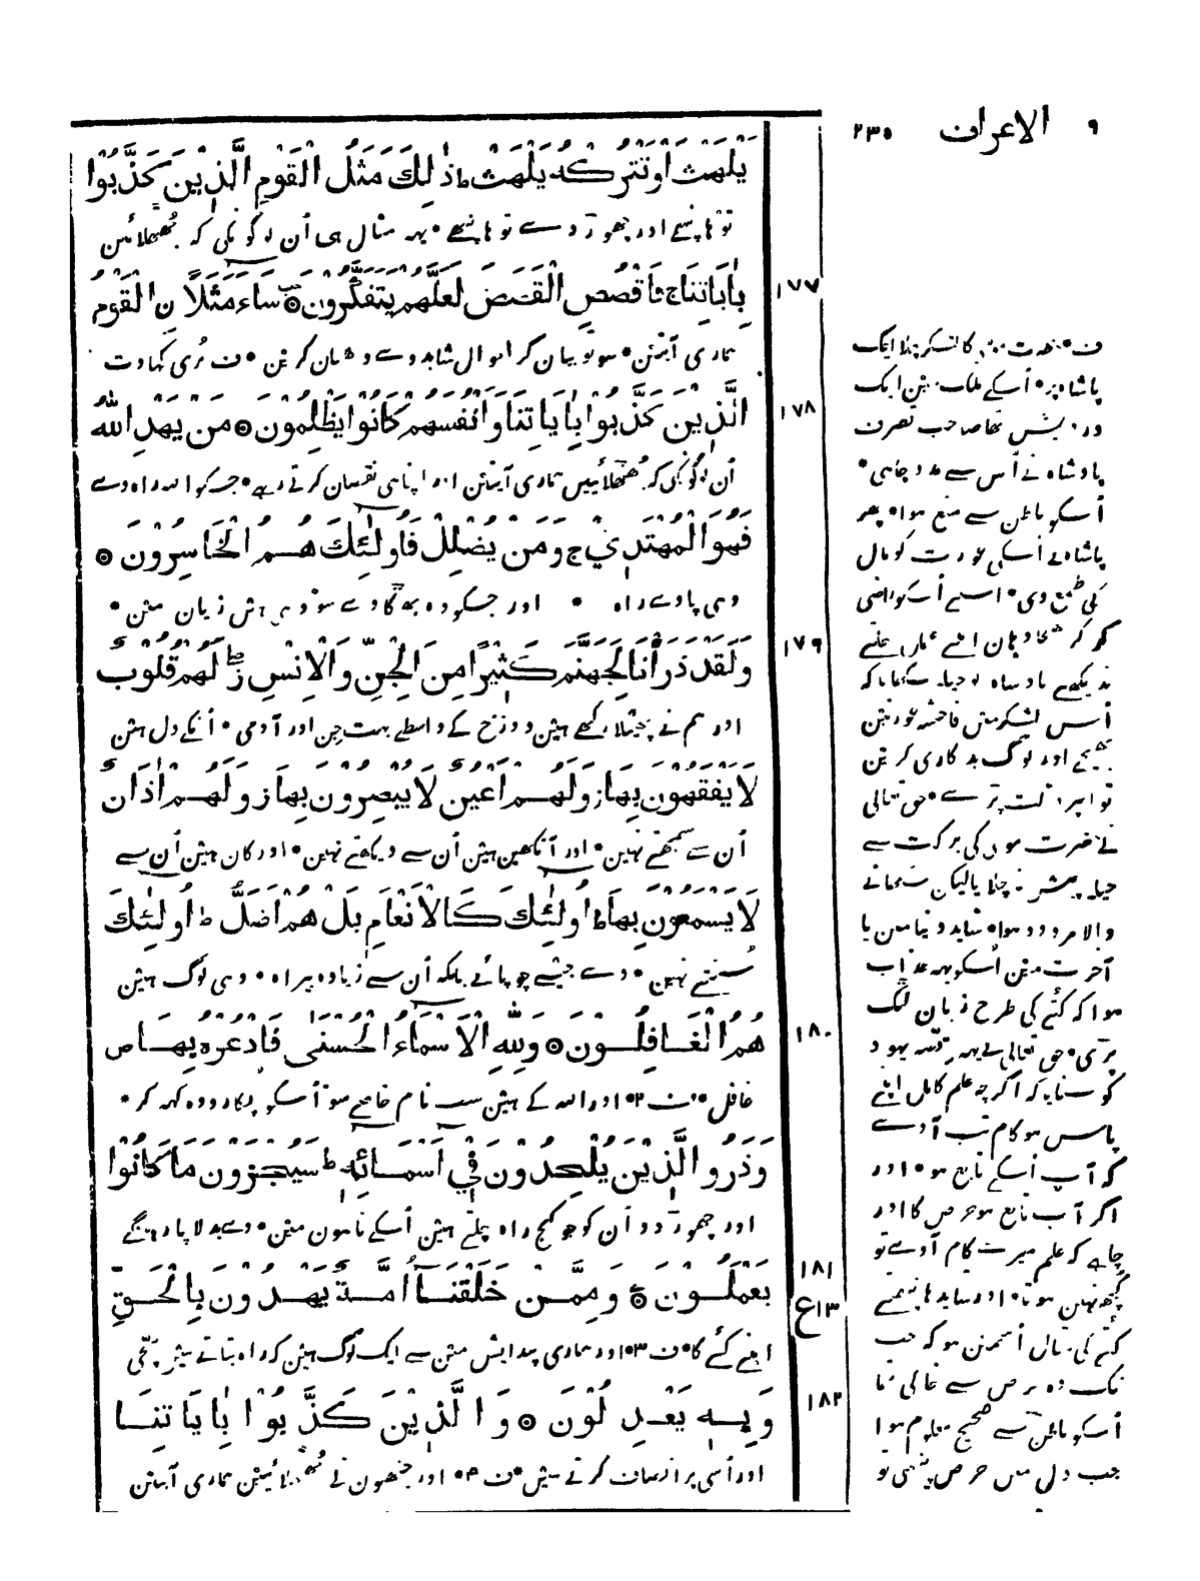 ٩ الاعراف ٢٣٥
يَلْهَثْ أَوْ تَتْرُكْهُ يَلْهَثْ ط ذٰلِكَ مَثَلُ الْقَوْمِ الَّذِيْنَ كَذَّبُوْا
تو ہانپے اور چھوڑ دے تو ہانپے • یہہ مثال ہی اُن لوگونکی کہ جُھٹھلائین
بِاٰيَاتِنَا ج فَاقْصُصِ الْقَصَصَ لَعَلَّهُمْ يَتَفَكَّرُوْنَ ⊙ سَاءَ مَثَلًا نِ الْقَوْمُ
١٧٧
ہماری آیتین • سو تو بیان کر احوال شاید وے دھیان کرین • ف بُری کہاوت
الَّذِيْنَ كَذَّبُوْا بِاٰيَاتِنَا وَأَنْفُسَهُمْ كَانُوْا يَظْلِمُوْنَ ⊙ مَنْ يَهْدِ اللّٰهُ
١٧٨
اُن لوگونکی کہ جُھٹھلائیین ہماری آیتین اور اپناہی نقصان کرتے رہے • جسکو اللہ راہ دے
فَهُوَ الْمُهْتَدِيْ ج وَمَنْ يُضْلِلْ فَأُولٰئِكَ هُمُ الْخَاسِرُوْنَ ⊙
وہی پاوے راہ • اور جسکو وہ بھٹکاوے سو وہی ہین زیان مین •
وَلَقَدْ ذَرَأْنَا لِجَهَنَّمَ كَثِيْرًا مِنَ الْجِنِّ وَالْاِنْسِ ز لَهُمْ قُلُوْبٌ
١٧٩
اور ہم نے پھیلا رکھے ہین دوزخ کے واسطے بہت جِن اور آدمی • اُنکے دل ہین
لَا يَفْقَهُوْنَ بِهَا ز وَلَهُمْ أَعْيُنٌ لَا يُبْصِرُوْنَ بِهَا ز وَلَهُمْ اٰذَانٌ
اُن سے سمجھتے نہین • اور آنکھین ہین اُن سے دیکھتے نہین • اور کان ہین اُن سے
لَا يَسْمَعُوْنَ بِهَا ط أُولٰئِكَ كَالْاَنْعَامِ بَلْ هُمْ أَضَلُّ ط أُولٰئِكَ
سُنتے نہین • وے جیسے چوپائے بلکہ اُن سے زیادہ بیراہ • وہی لوگ ہین
هُمُ الْغَافِلُوْنَ ⊙ وَلِلّٰهِ الْاَسْمَاءُ الْحُسْنٰى فَادْعُوْهُ بِهَا ص
١٨٠
غافل • ف ٢ • اور اللہ کے ہین سب نام خاصے سو اُسکو پکارو وہ کہہ کر •
وَذَرُوا الَّذِيْنَ يُلْحِدُوْنَ فِيْ أَسْمَائِهِ ط سَيُجْزَوْنَ مَا كَانُوْا
اور چھوڑ دو اُن کو جو کج راہ چلتے ہین اُسکے نامون مین • وے بدلا پا رہینگے
يَعْمَلُوْنَ ⊙ وَمِمَّنْ خَلَقْنَا أُمَّةٌ يَهْدُوْنَ بِالْحَقِّ
١٨١
١٣ ع
اپنے کئے کا • ف ٣ • اور ہماری پیدایش مین سے ایک لوگ ہین کہ راہ بتاتے ہین سچی
وَبِهٖ يَعْدِلُوْنَ ⊙ وَالَّذِيْنَ كَذَّبُوْا بِاٰيَاتِنَا
١٨٢
اور اُسی پر انصاف کرتے ہین • ف ٤ • اور جنھون نے جُھٹھلائین ہماری آیتین
کا لشکر چلا ایک
پاشاہ پر • اُسکے ملک مین ایک
درویش تھا صاحب تصرف
پادشاہ نے اُس سے مدد چاہی •
اُسکو باطن سے منع ہوا • پھر
پاشاہ نے اُسکی عورت کو مال
کی طمع دی • اسنے اُسکو راضی
کر کر
اُس لشکر مین فاحشہ عورتین
بھیجے اور لوگ بدکاری کرین
حق تعالی
نے حضرت موسی کی برکت سے
حیلہ پیش نہ چلایا لیکن سکھانے
والا مردود ہوا • شاید دنیا مین یا
آخرت مین اُسکو یہہ عذاب
ہوا کہ کتے کی طرح زبان لٹک
پڑی • حق تعالی نے یہہ قصہ یہود
کو سنایا کہ اگرچہ علم کامل اپنے
پاس ہو کام تب آوے
کہ آپ اُسکے تابع ہو • اور
اگر آپ تابع ہو حرص کا اور
چاہے کہ علم میرے کام آوے تو
کچھ نہین ہوتا • اور شاید ہانپنے
کتے کی مثال اُسمین ہو کہ جب
تک وہ حرص سے خالی تھا
اُسکو باطن سے صحیح معلوم ہوا
جب دل مین حرص بیٹھی تو